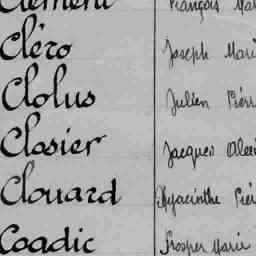 Clément François
Cléro Joseph Marie
Clolus Julien Pierr
Closier Jacques Alexi
Clouard Hyacinthe Pier
Coadic Prosper Marie